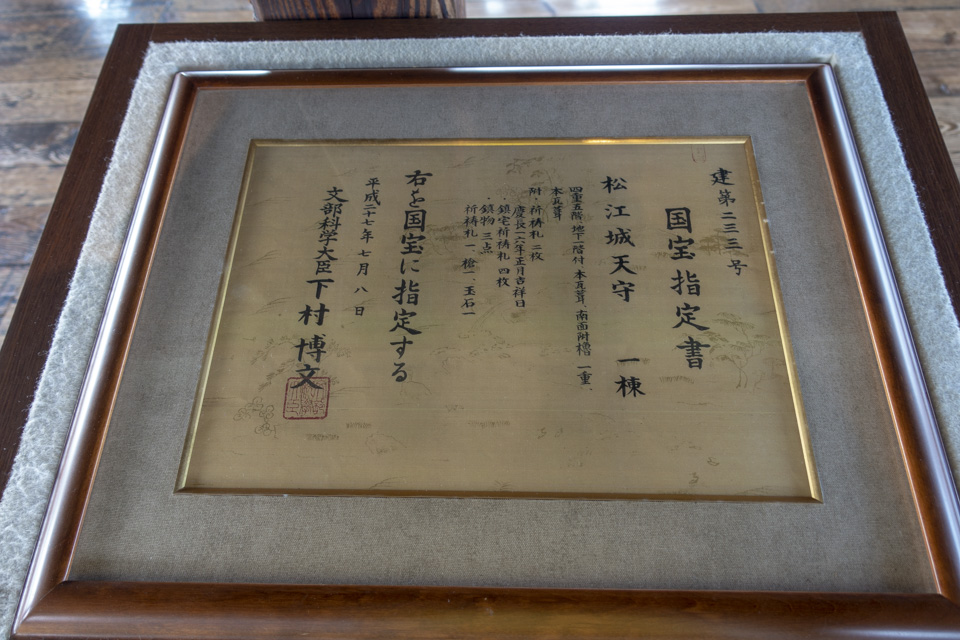 建第二三三号
国宝指定書
松江城天守 一棟
四重五階地下一階付、本瓦葺、南面附櫓一重、
本瓦葺
附・祈祷札 二枚
慶長一六年正月吉祥日
・鎮宅祈祷札 四枚
・鎮物 三点
祈祷札一、槍一、玉石一
右を国宝に指定する
平成二十七年七月八日
文部科学大臣 下村博文